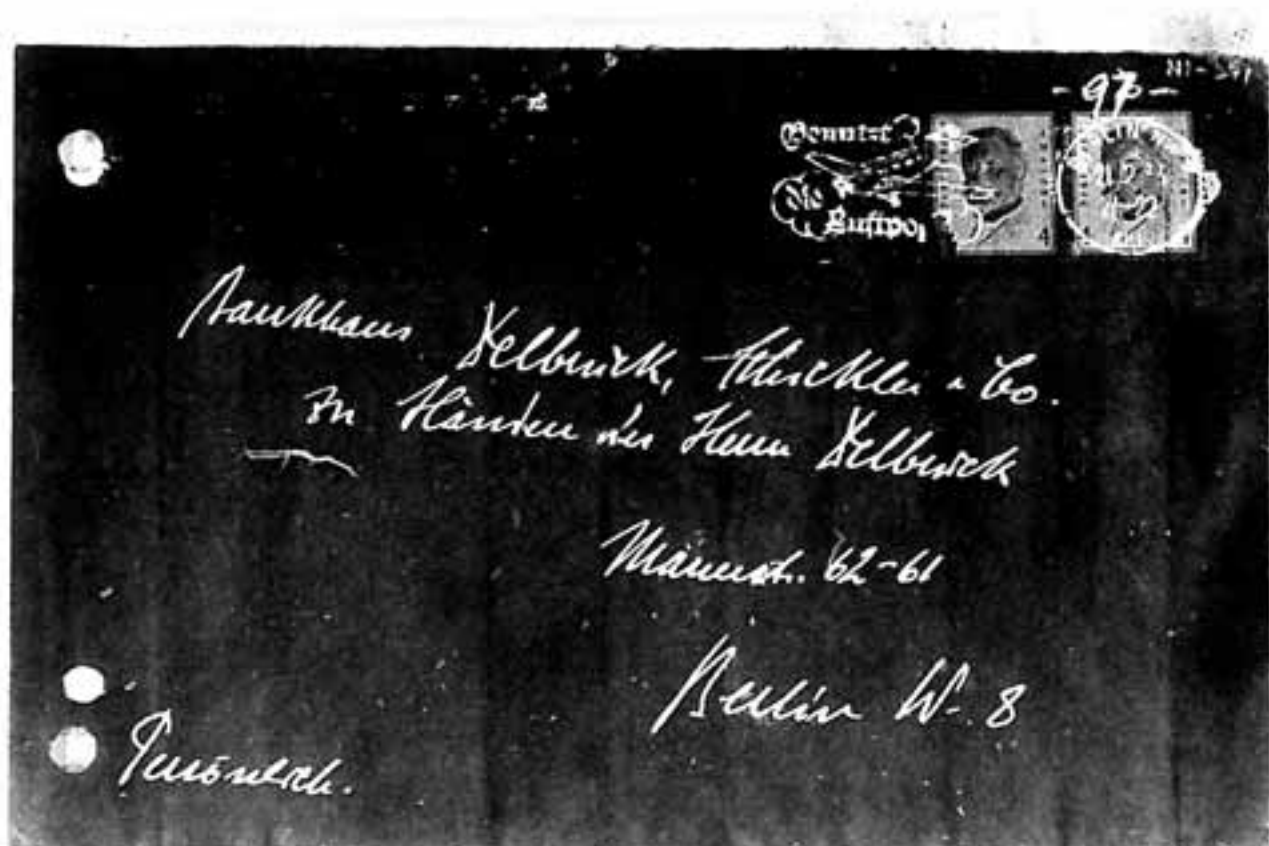 - 97 -
Benutzt
die
Luftpost
Bankhaus Delbrück, Schickler u Co.
zu Händen des Herrn Delbrück
62-61
Berlin W. 8
Persönlich.